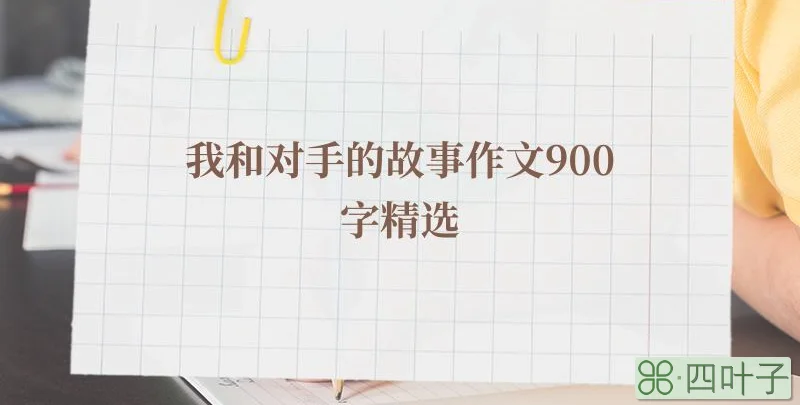 我和对手的故事作文900
字精选
四叶子